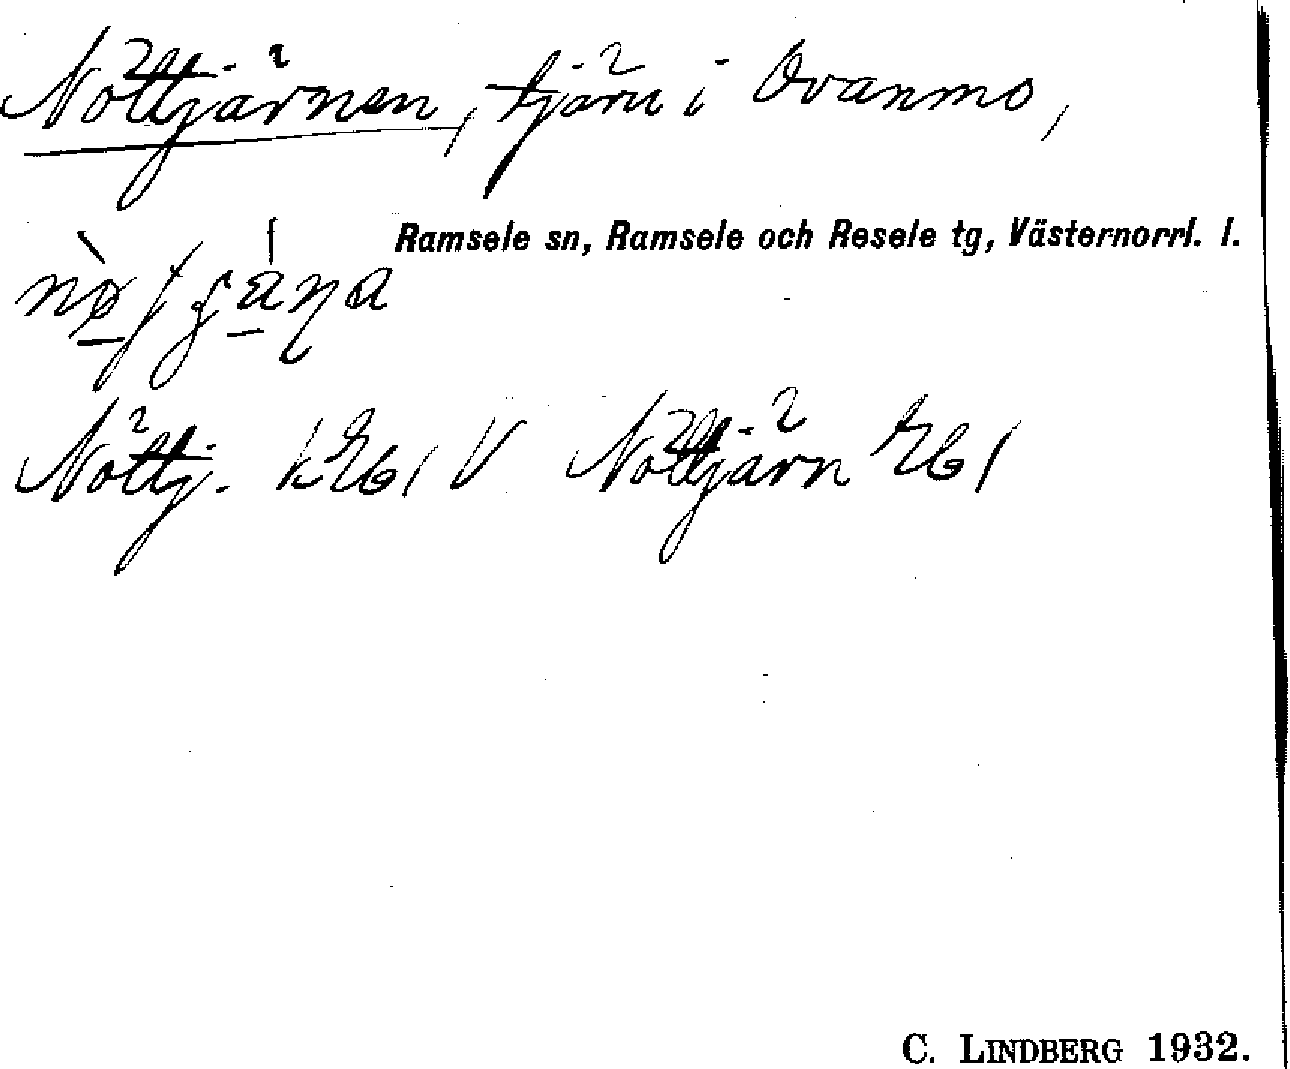 Nöttjärnen, tjärn i Ovanmo,
Ramsele sn, Ramsele och Resele tg, Västernorrl. l.
Nöttj. V Nöttjärn
C. LINDBERG 1932.